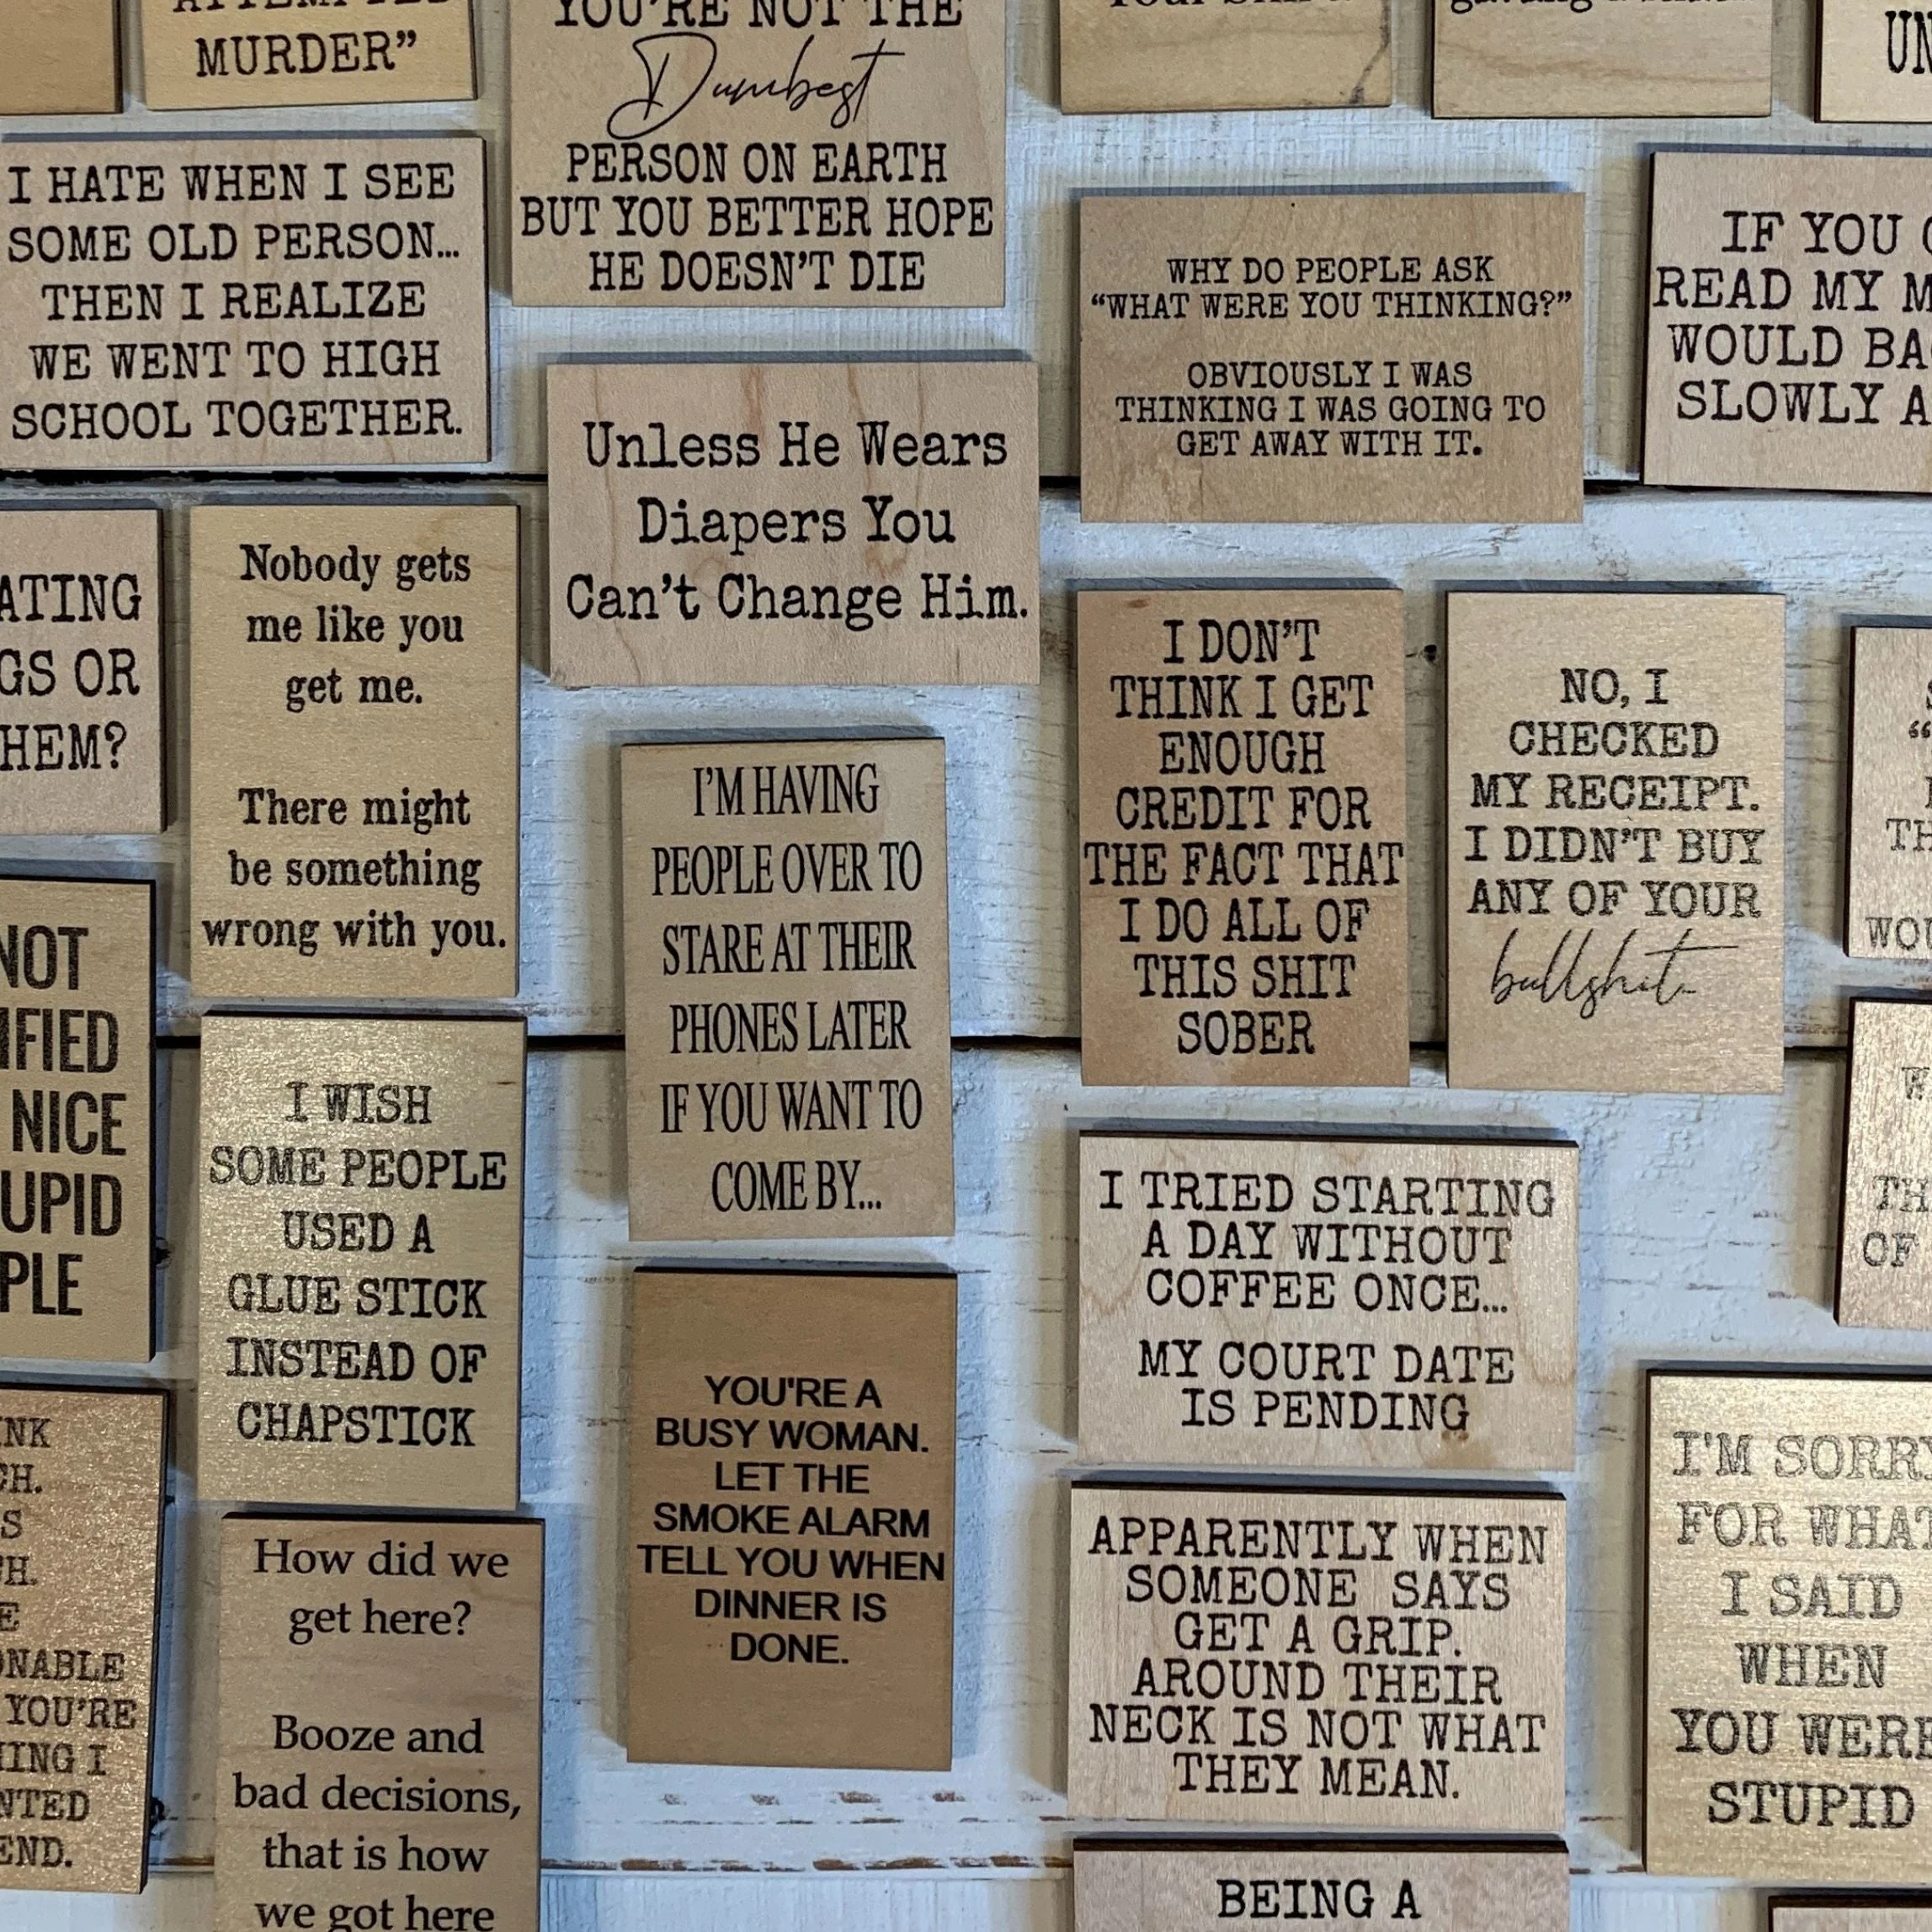 MURDER”
YOU'RE NOT THE
Dumbest
PERSON ON EARTH
BUT YOU BETTER HOPE
HE DOESN'T DIE
UN
I HATE WHEN I SEE
SOME OLD PERSON...
THEN I REALIZE
WE WENT TO HIGH
SCHOOL TOGETHER.
WHY DO PEOPLE ASK
“WHAT WERE YOU THINKING?”
OBVIOUSLY I WAS
THINKING I WAS GOING TO
GET AWAY WITH IT.
IF YOU
READ MY M
WOULD BA
SLOWLY A
Unless He Wears
Diapers You
Can't Change Him.
ATING
GS OR
HEM?
Nobody gets
me like you
get me.
There might
be something
wrong with you.
I DON'T
THINK I GET
ENOUGH
CREDIT FOR
THE FACT THAT
I DO ALL OF
THIS SHIT
SOBER
NO, I
CHECKED
MY RECEIPT.
I DIDN'T BUY
ANY OF YOUR
bullshit.
TH
WOU
I'M HAVING
PEOPLE OVER TO
STARE AT THEIR
PHONES LATER
IF YOU WANT TO
COME BY...
NOT
IFIED
NICE
UPID
PLE
I WISH
SOME PEOPLE
USED A
GLUE STICK
INSTEAD OF
CHAPSTICK
TH
OF
I TRIED STARTING
A DAY WITHOUT
COFFEE ONCE...
MY COURT DATE
IS PENDING
YOU'RE A
BUSY WOMAN.
LET THE
SMOKE ALARM
TELL YOU WHEN
DINNER IS
DONE.
INK
CH.
S
H.
E
ONABLE
YOU'RE
HING I
NTED
END.
How did we
get here?
Booze and
bad decisions,
that is how
we got here
APPARENTLY WHEN
SOMEONE SAYS
GET A GRIP.
AROUND THEIR
NECK IS NOT WHAT
THEY MEAN.
I'M SORRY
FOR WHAT
I SAID
WHEN
YOU WERE
STUPID
BEING A